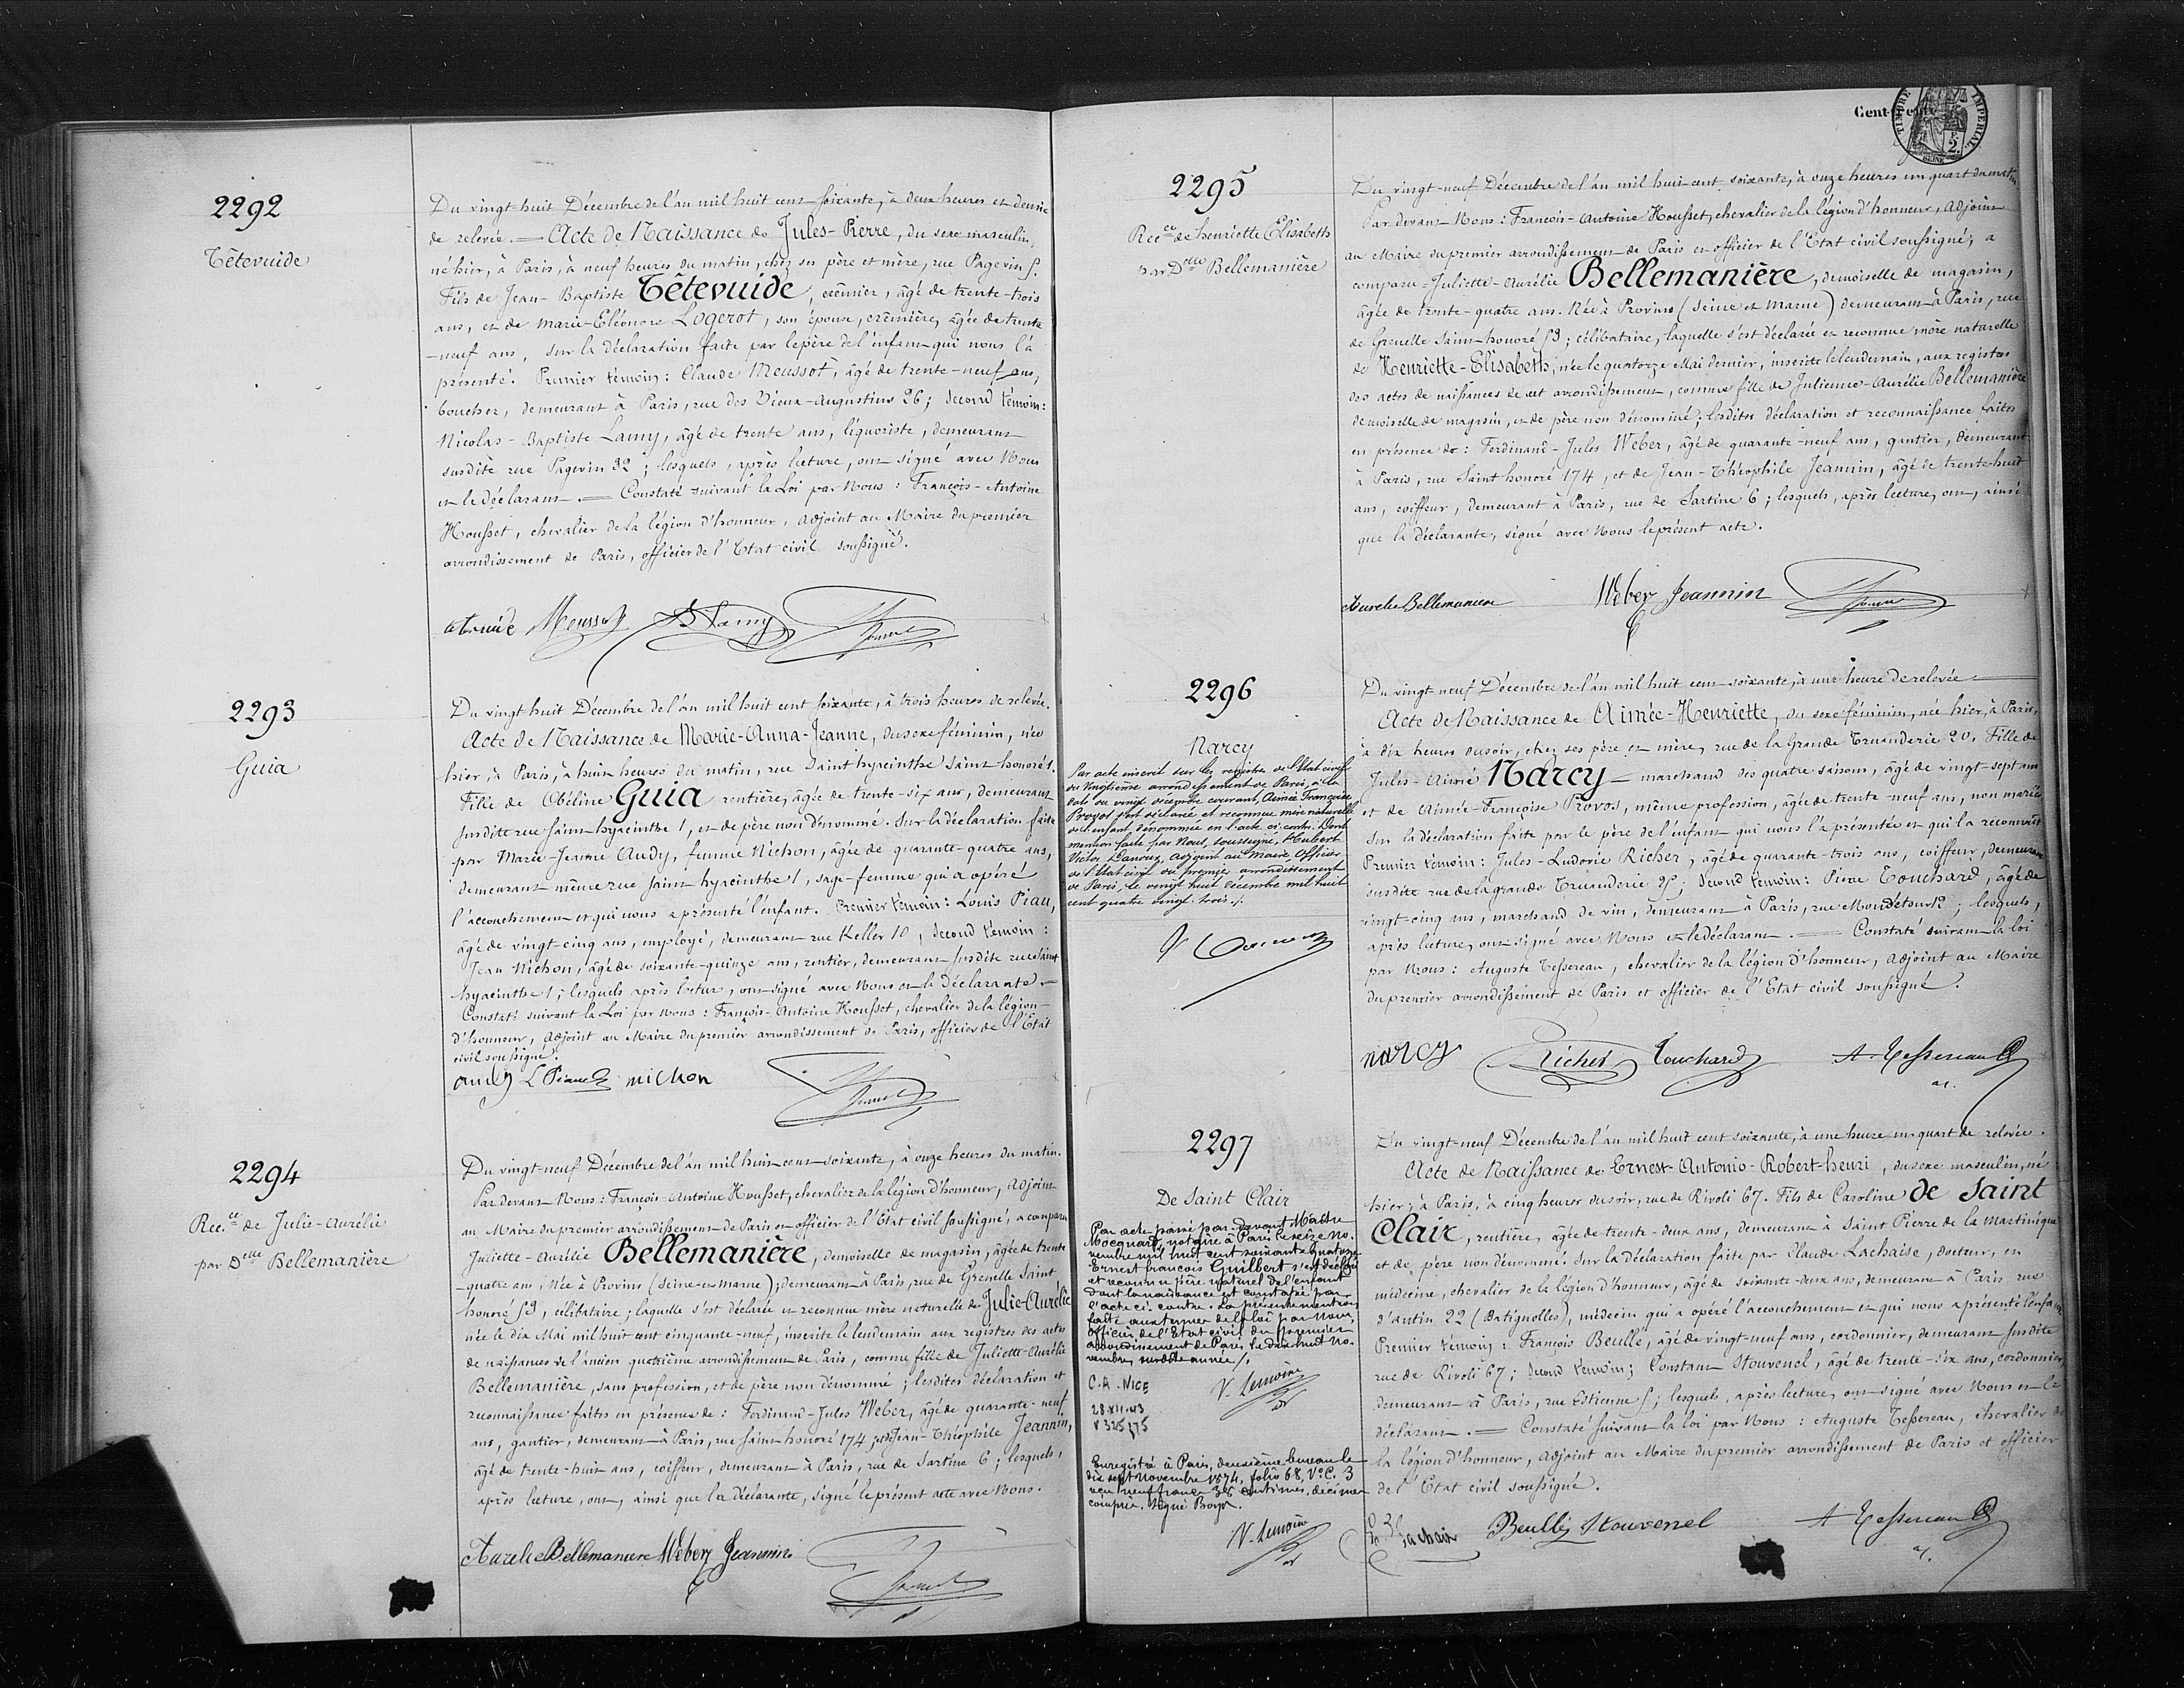 2292
Têtevuide
Du vingt-huit Décembre de l'an mil huit cent soixante, à deux heures et demie
de relevée. — Acte de Naissance de Jules-Pierre, du sexe masculin,
né hier, à Paris, à neuf heures du matin, chez ses père et mère, rue Pagevin 5.
Fils de Jean-Baptiste Têtevuide, crêmier, âgé de trente-trois
ans, et de Marie-Eléonore Logerot, son épouse, crêmière, âgée de trente
-neuf ans, sur la déclaration faite par le père de l'enfant qui nous l'a
présenté. Premier témoin: Claude Meussot, âgé de trente-neuf ans,
boucher, demeurant à Paris, rue des Vieux-Augustins 26; second témoin:
Nicolas-Baptiste Lamy, âgé de trente ans, liquoriste, demeurant
susdite rue Pagevin 32; lesquels, après lecture, ont signé avec Nous
et le déclarant. — Constaté suivant la Loi par Nous: François-Antoine
Housset, chevalier de la légion d'honneur, adjoint au Maire du premier
arrondissement de Paris, officier de l'Etat civil soussigné.
Meussot Lamy
2293
Guia
Du vingt huit Décembre de l'an mil huit cent soixante, à trois heures de relevée.
Acte de Naissance de Marie-Anna-Jeanne, du sexe féminin, née
hier, à Paris, à huit heures du matin, rue Saint hyacinthe Saint honoré 1.
Fille de Obéline Guia rentière, âgée de trente-six ans, demeurant
susdite rue Saint hyacinthe 1, et de père non dénommé. Sur la déclaration faite
par Marie-Jeanne Audy, femme Michon, âgée de quarante-quatre ans,
demeurant même rue Saint hyacinthe 1, sage-femme qui a opéré
l'accouchement et qui nous a présenté l'enfant. Premier témoin: Louis Piau,
âgé de vingt-cinq ans, employé, demeurant rue Keller 10, second témoin:
Jean Michon, âgé de soixante-quinze ans, rentier, demeurant susdite rue Saint
hyacinthe 1; lesquels après lecture, ont signé avec Nous et la Déclarante. —
Constaté suivant la Loi par Nous: François-Antoine Housset, chevalier de la légion-
d'honneur, adjoint au Maire du premier arrondissement de Paris, officier de l'Etat
civil soussigné.
audy L Piau michon
2294
Rec.ce de Julie-Aurélie
par Delle Bellemanière
Du vingt-neuf Décembre de l'an mil huit cent soixante, à onze heures du matin.
Par devant Nous: François-Antoine Housset, chevalier de la légion d'honneur, adjoint
au Maire du premier arrondissement de Paris et officier de l'Etat civil soussigné, a comparu
Juliette-Aurélie Bellemanière, demoiselle de magasin, âgée de trente
-quatre ans, née à Provins (Seine et marne); demeurant à Paris, rue de Grenelle Saint
honoré 53, célibataire; laquelle s'est déclarée et reconnue mère naturelle de Julie-Aurélie
née le dix Mai mil huit cent cinquante-neuf, inscrite le lendemain aux registres des actes
de naissances de l'ancien quatrième arrondissement de Paris, comme fille de Juliette-Aurélie
Bellemanière, sans profession, et de père non dénommé; lesdites déclaration et
reconnaissance faites en présence de: Ferdinand-Jules Weber, âgé de quarante-neuf
ans, gantier, demeurant à Paris, rue Saint honoré 174; et Jean-Théophile Jeannin,
âgé de trente-huit ans, coiffeur, demeurant à Paris, rue de Sartine 6; lesquels,
après lecture, ont, ainsi que la déclarante, signé le présent acte avec Nous.
Aurelie Bellemaniere Weber Jeannin
TIMBRE IMPERIAL
2
SEINE
2295
Rec.ce de henriette Elisabeth
par Delle Bellemanière
Du vingt-neuf Décembre de l'an mil huit cent soixante, à onze heures un quart du matin
Par devant Nous: François-Antoine Housset, chevalier de la légion d'honneur, adjoint
au Maire du premier arrondissement de Paris et officier de l'Etat civil soussigné, a
comparu Juliette-Aurélie Bellemanière, demoiselle de magasin,
âgée de trente-quatre ans. Née à Provins (Seine et Marne) demeurant à Paris, rue
de Grenelle Saint-honoré 53; célibataire, laquelle s'est déclarée et reconnue mère naturelle
de Henriette-Elisabeth, née le quatorze Mai dernier, inscrite le lendemain, aux registres
des actes de naissances de cet arrondissement, comme fille de Julienne-Aurélie Bellemanière
demoiselle de magasin, et de père non dénommé; lesdites déclaration et reconnaissance faites
en présence de: Ferdinand-Jules Weber, âgé de quarante-neuf ans, gantier, demeurant
à Paris, rue Saint honoré 174, et de Jean-Théophile Jeannin, âgé de trente-huit
ans, coiffeur, demeurant à Paris, rue de Sartine 6; lesquels, après lecture, ont, ainsi
que la déclarante, signé avec Nous le présent acte.
Aurelie Bellemaniere Weber Jeannin
2296
Narcy
Par acte inscrit sur les registres de l'Etat civil
du Vingtième arrondissement de Paris, à la
date du vingt décembre courant, Aimée Françoise
Provos s'est déclarée et reconnue mère naturelle
de l'enfant dénommée en l'acte ci-contre. Dont
mention faite par Nous, soussigné, Hubert
Victor adjoint au Maire Officier
de l'Etat civil du premier arrondissement
de Paris, le vingt huit décembre mil huit
cent quatre vingt-trois./.
Du vingt-neuf Décembre de l'an mil huit cent soixante, à une heure de relevée —
Acte de Naissance de Aimée-Henriette, du sexe féminin, née hier, à Paris,
à dix heures du soir, chez ses père et mère, rue de la Grande Truanderie 20. Fille de
Jules-Aimé Narcy — marchand des quatre saisons, âgé de vingt-sept ans
et de Aimée-Françoise Provos, même profession, âgée de trente-neuf ans, non mariés
Sur la déclaration faite par le père de l'enfant qui nous l'a présentée et qui l'a reconnue
Premier témoin: Jules-Ludovic Richer, âgé de quarante-trois ans, coiffeur, demeurant
susdite rue de la grande Truanderie 25; Second témoin: Pierre Touchard, âgé de
vingt-cinq ans, marchand de vin, demeurant à Paris, rue Mondétour 12; lesquels,
après lecture, ont signé avec Nous et le déclarant. — Constaté suivant la loi
par Nous: Auguste Tessereau, chevalier de la légion d'honneur, adjoint au Maire
du premier arrondissement de Paris et officier de l'Etat civil soussigné.
narcy Richer Touchard A. Tessereau
2297
De Saint Clair
Par acte passé par devant Maître
Mocquard, notaire à Paris le seize No-
vembre mil huit cent soixante quatorze
Ernest françois Guilbert s'est déclaré
et reconnu père naturel de l'enfant
dont la naissance est constatée par
l'acte ci-contre. La présente mention
faite aux termes de la loi par Nous,
Officier de l'Etat civil du premier
arrondissement de Paris le dix huit No-
vembre, susdite année /.
V. Lemoine
C.A. NICE
28.XII.43
V 325 175
Enregistré à Paris, deuxième bureau le
dix sept Novembre 1874, folio 68, Vo C. 3
reçu neuf francs 38 centimes, décimes
compris. Signé Boyer.
V. Lemoine
Du vingt-neuf Décembre de l'an mil huit cent soixante, à une heure un quart de relevée.
Acte de Naissance de Ernest-Antonio-Robert-henri, du sexe masculin, né
hier, à Paris, à cinq heures du soir, rue de Rivoli 67. Fils de Caroline de Saint
Clair, rentière, âgée de trente-deux ans, demeurant à Saint Pierre de la Martinique
et de père non dénommé. Sur la déclaration faite par Claude Lachaise, docteur, en
médecine, chevalier de la légion d'honneur, âgé de soixante-deux ans, demeurant à Paris, rue
d'antin 22 (Batignolles), médecin qui a opéré l'accouchement et qui nous a présenté l'enfant
Premier témoin: François Beullé, âgé de vingt-neuf ans, cordonnier, demeurant susdite
rue de Rivoli 67; Second témoin; Constant Stouvenel, âgé de trente-six ans, cordonnier,
demeurant à Paris, rue Estienne 5; lesquels, après lecture, ont signé avec Nous et le
déclarant. — Constaté suivant la loi par Nous: Auguste Tessereau, chevalier de
la légion d'honneur, adjoint au Maire du premier arrondissement de Paris et officier
de l'Etat civil soussigné.
Lachaise Beullé Stouvenel A Tessereau